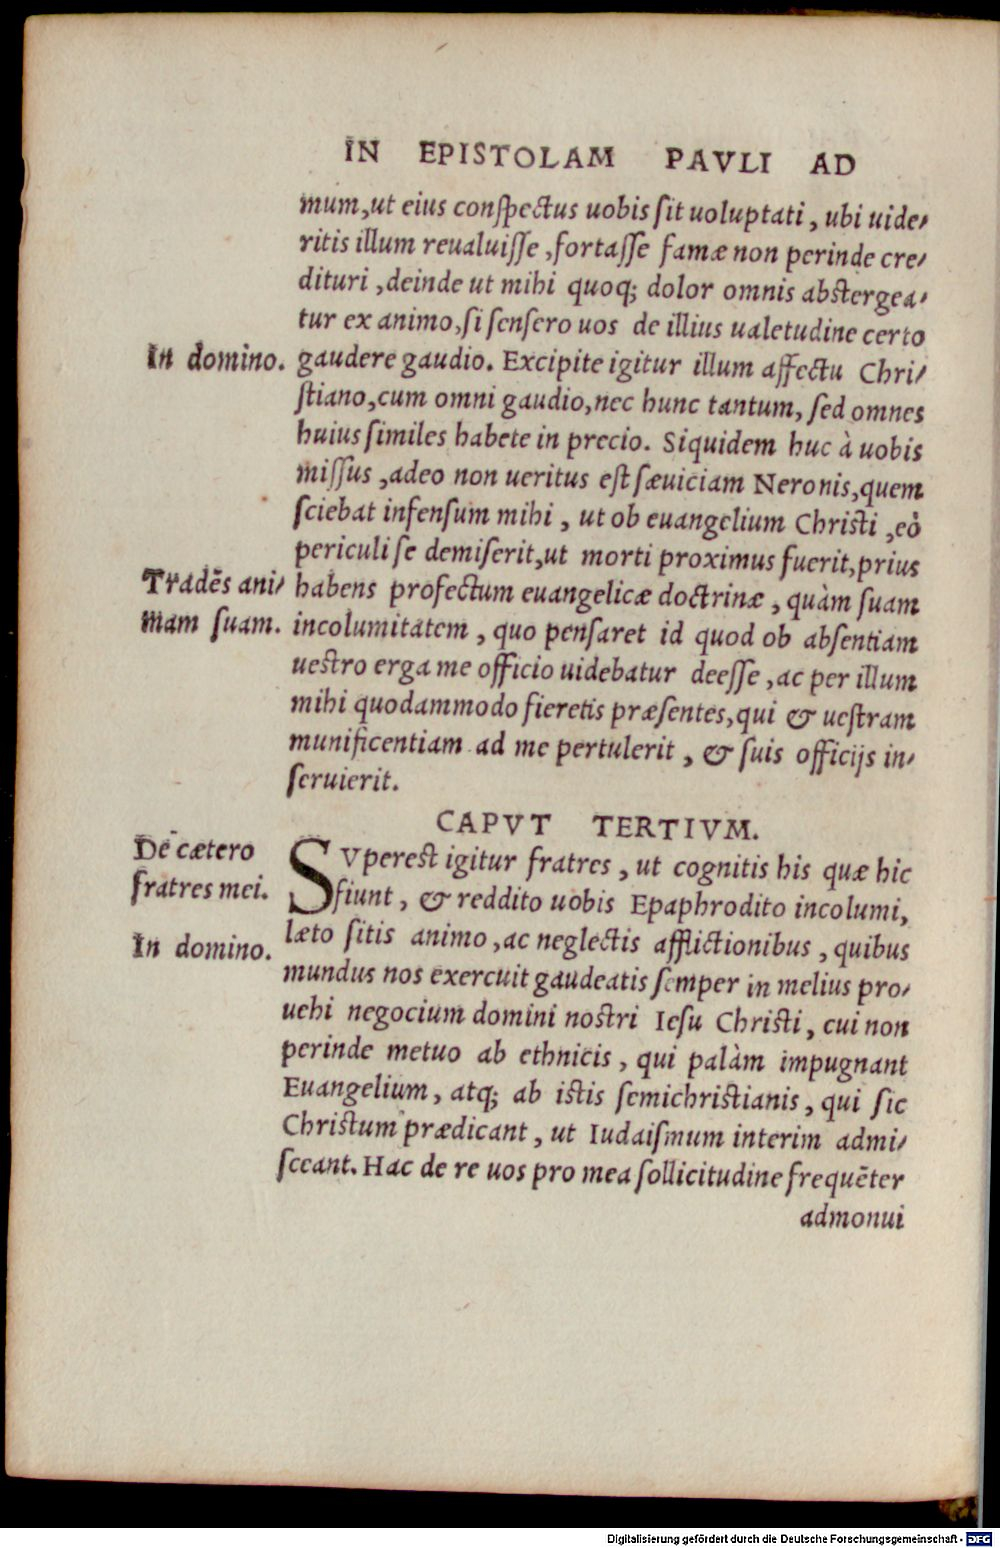 IN EPISTOLAM PAVLI AD
mum,ut eius conſpectus uobis ſit uoluptati, ubi uide⸗
ritis illum reualuiſſe ,fortaſſe famæ non perinde cre⸗
dituri ,deinde ut mihi quoq; dolor omnis abſtergea⸗
tur ex animo,ſi ſenſero uos de illius ualetudine certo
In domino.
gaudere gaudio. Excipite igitur illum affectu Chri⸗
ſtiano,cum omni gaudio,nec hunc tantum, ſed omnes
huius ſimiles habete in precio. Siquidem huc à uobis
miſſus ,adeo non ueritus eſt ſæuiciam Neronis,quem
ſciebat infenſum mihi, ut ob euangelium Chriſti ,eò
periculi ſe demiſerit,ut morti proximus fuerit,prius
Tradẽs ani⸗
habens profectum euangelicæ doctrinæ, quàm ſuam
mam ſuam.
incolumitatem, quo penſaret id quod ob abſentiam
ueſtro erga me officio uidebatur deeſſe ,ac per illum
mihi quodammodo fieretis præſentes,qui & ueſtram
munificentiam ad me pertulerit, & ſuis officijs in⸗
ſeruierit.
CAPVT TERTIVM.
De cætero
SVpereſt igitur fratres, ut cognitis his quæ hic
fratres mei.
fiunt, & reddito uobis Epaphrodito incolumi,
In domino.
læto ſitis animo ,ac neglectis afflictionibus, quibus
mundus nos exercuit gaudeatis ſemper in melius pro⸗
uehi negocium domini noſtri Ieſu Chriſti, cui non
perinde metuo ab ethnicis, qui palàm impugnant
Euangelium, atq; ab iſtis ſemichriſtianis, qui ſic
Chriſtum prædicant, ut Iudaiſmum interim admi⸗
ſceant. Hac de re uos pro mea ſollicitudine frequẽter
admonui
Digitalisierung gefördert durch die Deutsche Forschungsgemeinschaft - DFG